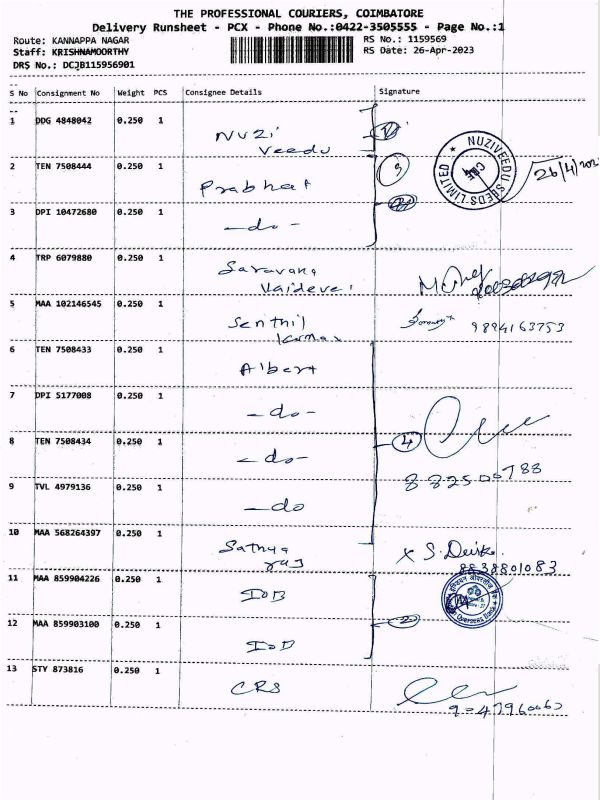 THE PROFESSIONAL COURIERS, COIMBATORE
Delivery Runsheet - PCX - Phone No.:0422-3505555 - Page No.:1
Route: KANNAPPA NAGAR
RS No.: 1159569
Staff: KRISHNAMOORTHY
RS Date: 26-Apr-2023
DRS No.: DCJB115956901
S No Consignment No Weight PCS Consignee Details Signature
1 DDG 4848042 0.250 1 Nuzi
Veedu
NUZIVEEDU SEEDS LIMITED
2 TEN 7508444 0.250 1 Prabhat
3
26/4/202
3 DPI 10472680 0.250 1 -do-
4 TRP 6079880 0.250 1 Saravana
Vaidevei
5 MAA 102146545 0.250 1 Senthil
Kumar
9894163753
6 TEN 7508433 0.250 1 Albert
7 DPI 5177008 0.250 1 -do-
8 TEN 7508434 0.250 1 -do-
4
9 TVL 4979136 0.250 1 -do
10 MAA 568264397 0.250 1 Sathya
raj
8838801083
11 MAA 859904226 0.250 1 IOB
12 MAA 859903100 0.250 1 IOB
2
13 STY 873816 0.250 1 CRS